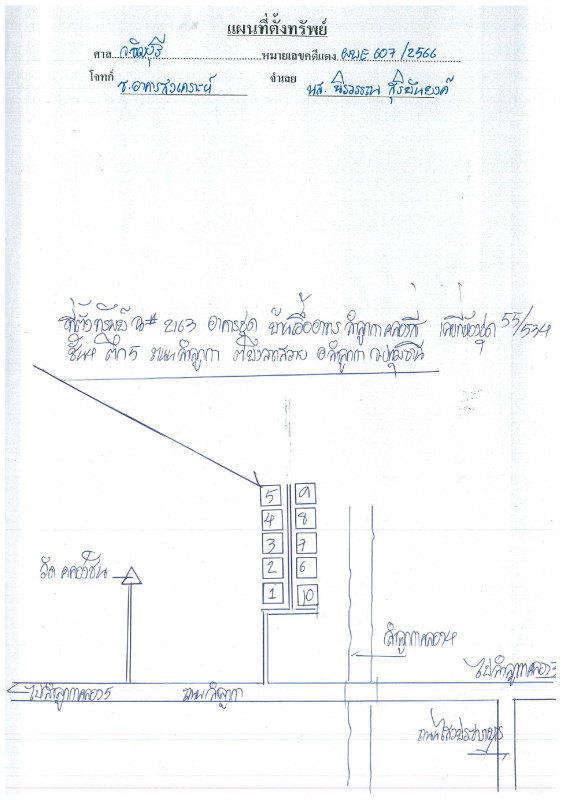 แผนที่ตั้งทรัพย์
ศาล จ.ธัญบุรี หมายเลขคดีแดง ผบE 607/2566
โจทก์ ธ.อาคารสงเคราะห์ จำเลย นส.
ที่ตั้งทรัพย์ ฉ# 2163 อาคารชุด บ้านเอื้ออาทร ลำลูกกาคลองสี่ เลขที่ห้องชุด 55/534
ชั้น4 ตึก5 ถนนลำลูกกา ต.บึงลาดสวาย อ.ลำลูกกา จ.ปทุมธานี
5 9
4 8
3 7
2 6
1 10
วัด คลองชัน
ลำลูกกาคลอง4
ไปลำลูกกาคลอง3
ไปลำลูกกาคลอง5 ถนนลำลูกกา
ถนนไสวประชาราษฎร์